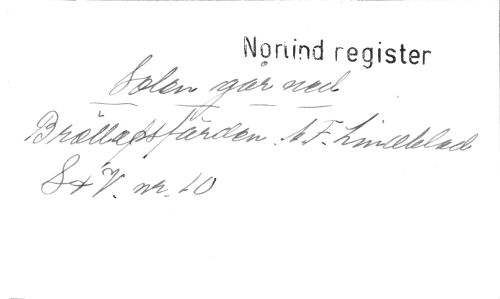 Norlind register
Solen går ned
Bröllopsfärden. A. F. Lindblad
S & V. nr. 10